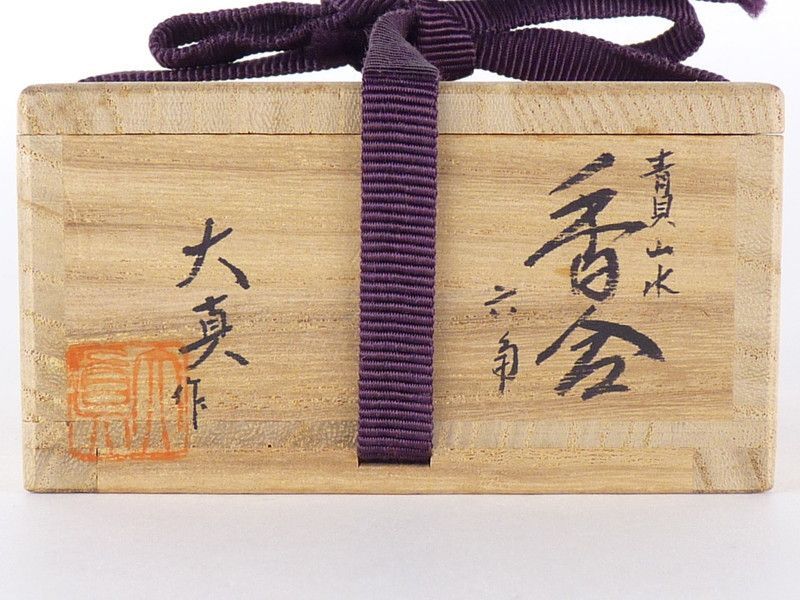 青貝山水
香合
六角
大真作
大真